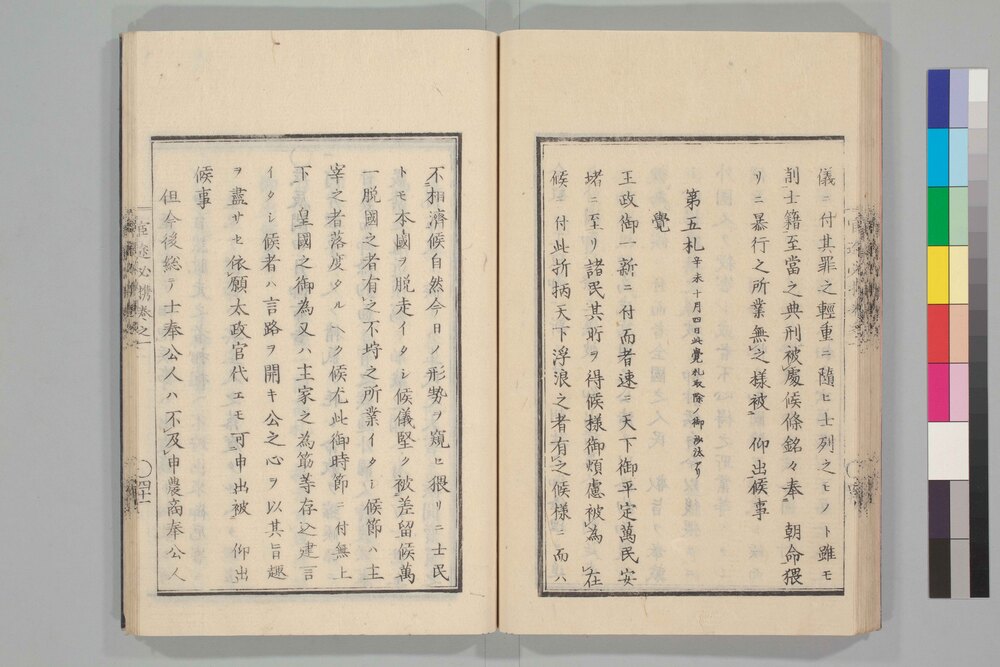 儀ニ付其罪之輕重ニ隨ヒ士列之モノト雖モ
削士籍至當之典刑被處候條銘々奉 朝命猥
リニ暴行之所業無之樣被 仰出候事
第五札 辛未十月四日此覺札取除ノ御
覺
王政御一新ニ付而者速ニ天下御平定萬民安
堵ニ至リ諸民其所ヲ得候樣御煩慮被為 在
候ニ付此折柄天下浮浪之者有之候樣ニ而ハ
不相濟候自然今日ノ形勢ヲ窺ヒ猥リニ士民
トモ本國ヲ脱走イタシ候儀堅ク被差留候萬
一脱國之者有之不埒之所業イタシ候節ハ主
宰之者落度タルヘク候尤此御時節ニ付無上
下 皇國之御為又ハ主家之為筋等存込建言
イタシ候者ハ言路ヲ開キ公之心ヲ以其旨趣
ヲ盡サセ依願太政官代エモ可申出被 仰出
候事
但今後總テ士奉公人ハ不及申農商奉公人
必携卷之一